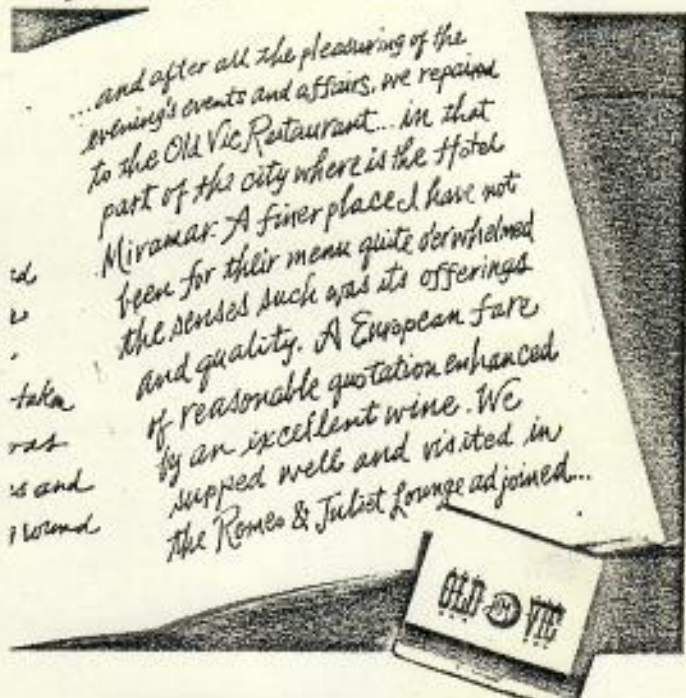 ...and after all the pleasuring of the
evening's events and affairs, we repaired
to the Old Vic Restaurant... in that
part of the city where is the Hotel
Miramar. A finer place I have not
been for their menu quite overwhelmed
the senses such was its offerings
and quality. A European fare
of reasonable quotation enhanced
by an excellent wine. We
supped well and visited in
the Romeo & Juliet Lounge adjoined...
taken
s and
OLD VIC